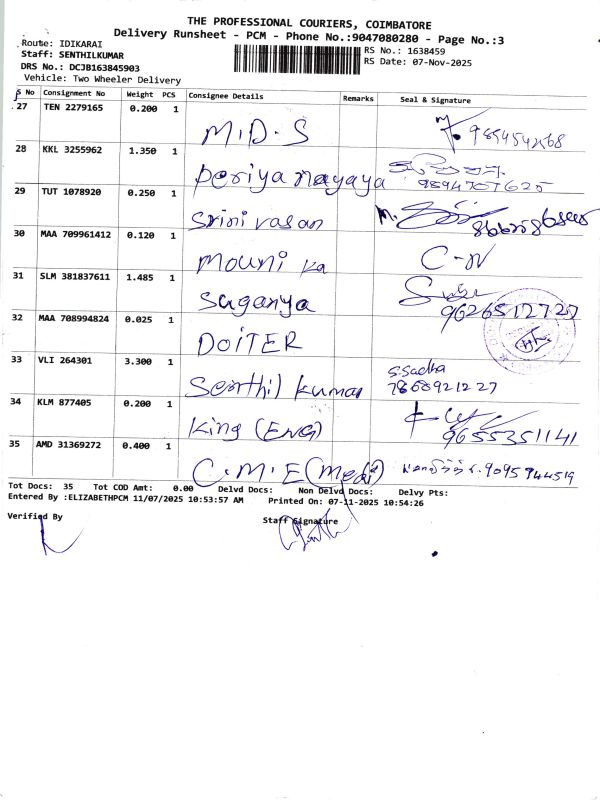 THE PROFESSIONAL COURIERS, COIMBATORE
Delivery Runsheet - PCM - Phone No.:9047080280 - Page No.:3
Route: IDIKARAI
RS No.: 1638459
Staff: SENTHILKUMAR
RS Date: 07-Nov-2025
DRS No.: DCJB163845903
Vehicle: Two Wheeler Delivery
S No Consignment No Weight PCS Consignee Details Remarks Seal & Signature
27 TEN 2279165 0.200 1
M.D.S
28 KKL 3255962 1.350 1
periya nayaya 9894707625
29 TUT 1078920 0.250 1
Srinivasan M.
30 MAA 709961412 0.120 1
mounika C-N
31 SLM 381837611 1.485 1
Suganya 9626512727
32 MAA 708994824 0.025 1
DOITER
33 VLI 264301 3.300 1
Senthil kumar S.Sadha 7868921227
34 KLM 877405 0.200 1
King (ENG) 9655351141
35 AMD 31369272 0.400 1
C.M.E (Medi) 9095944519
Tot Docs: 35 Tot COD Amt: 0.00 Delvd Docs: Non Delvd Docs: Delvy Pts:
Entered By :ELIZABETHPCM 11/07/2025 10:53:57 AM Printed On: 07-11-2025 10:54:26
Verified By Staff Signature